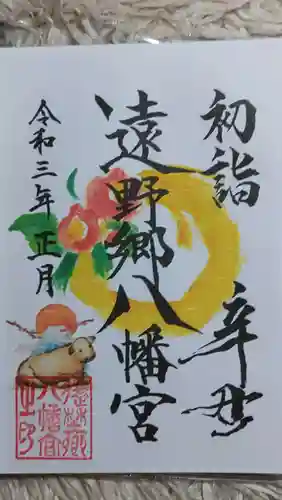 初詣 辛丑
遠野郷八幡宮
令和三年 正月
八幡宮
之印